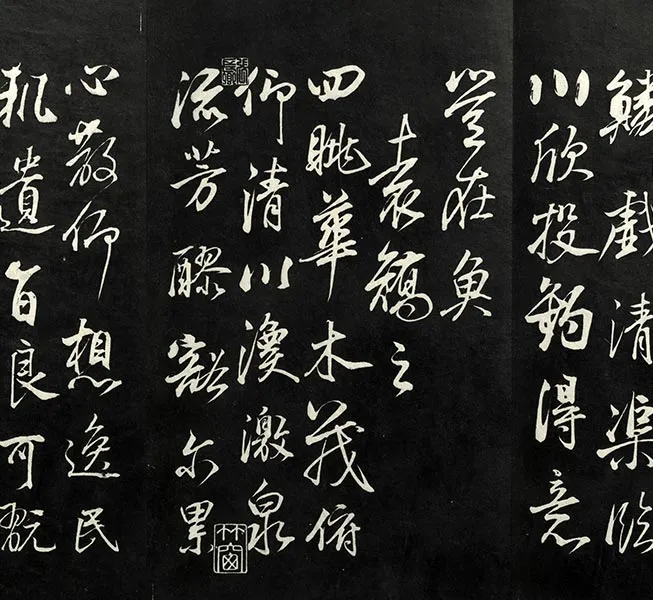 鱗戲清渠臨
川欣投釣得意
豈在魚
袁矯之
四眺華木茂俯
仰清川渙激泉
流芳醪豁尔累
心散仰想逸民
軌遺音良可翫
竹窗